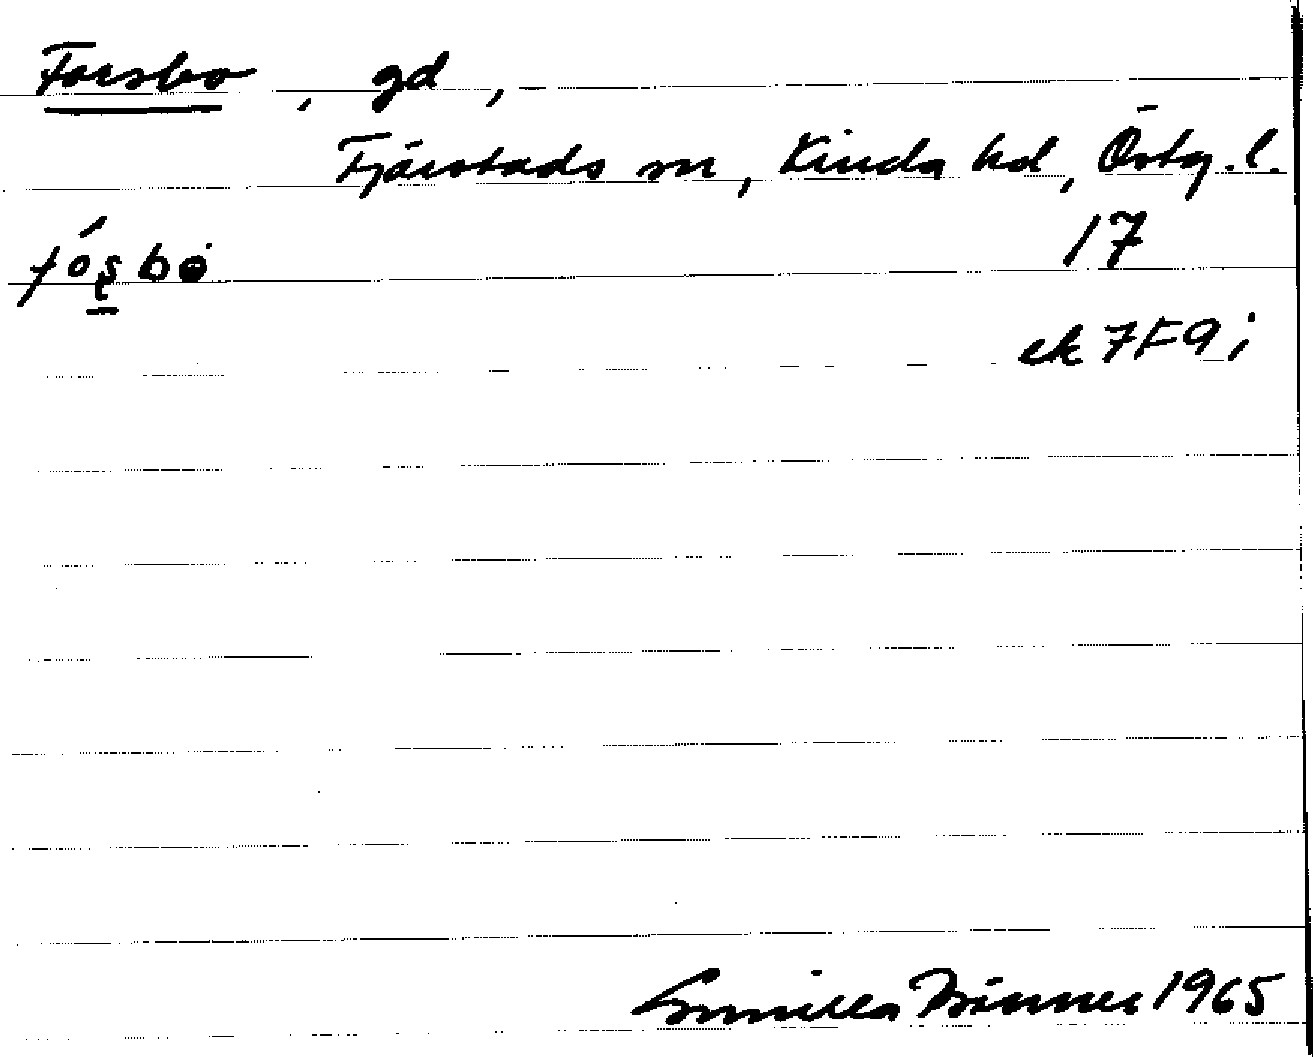 Forsbo, gd,
Tjärstads sn, Kinda hd, Östg. l.
17
ek 7F9i
Gunilla 1965